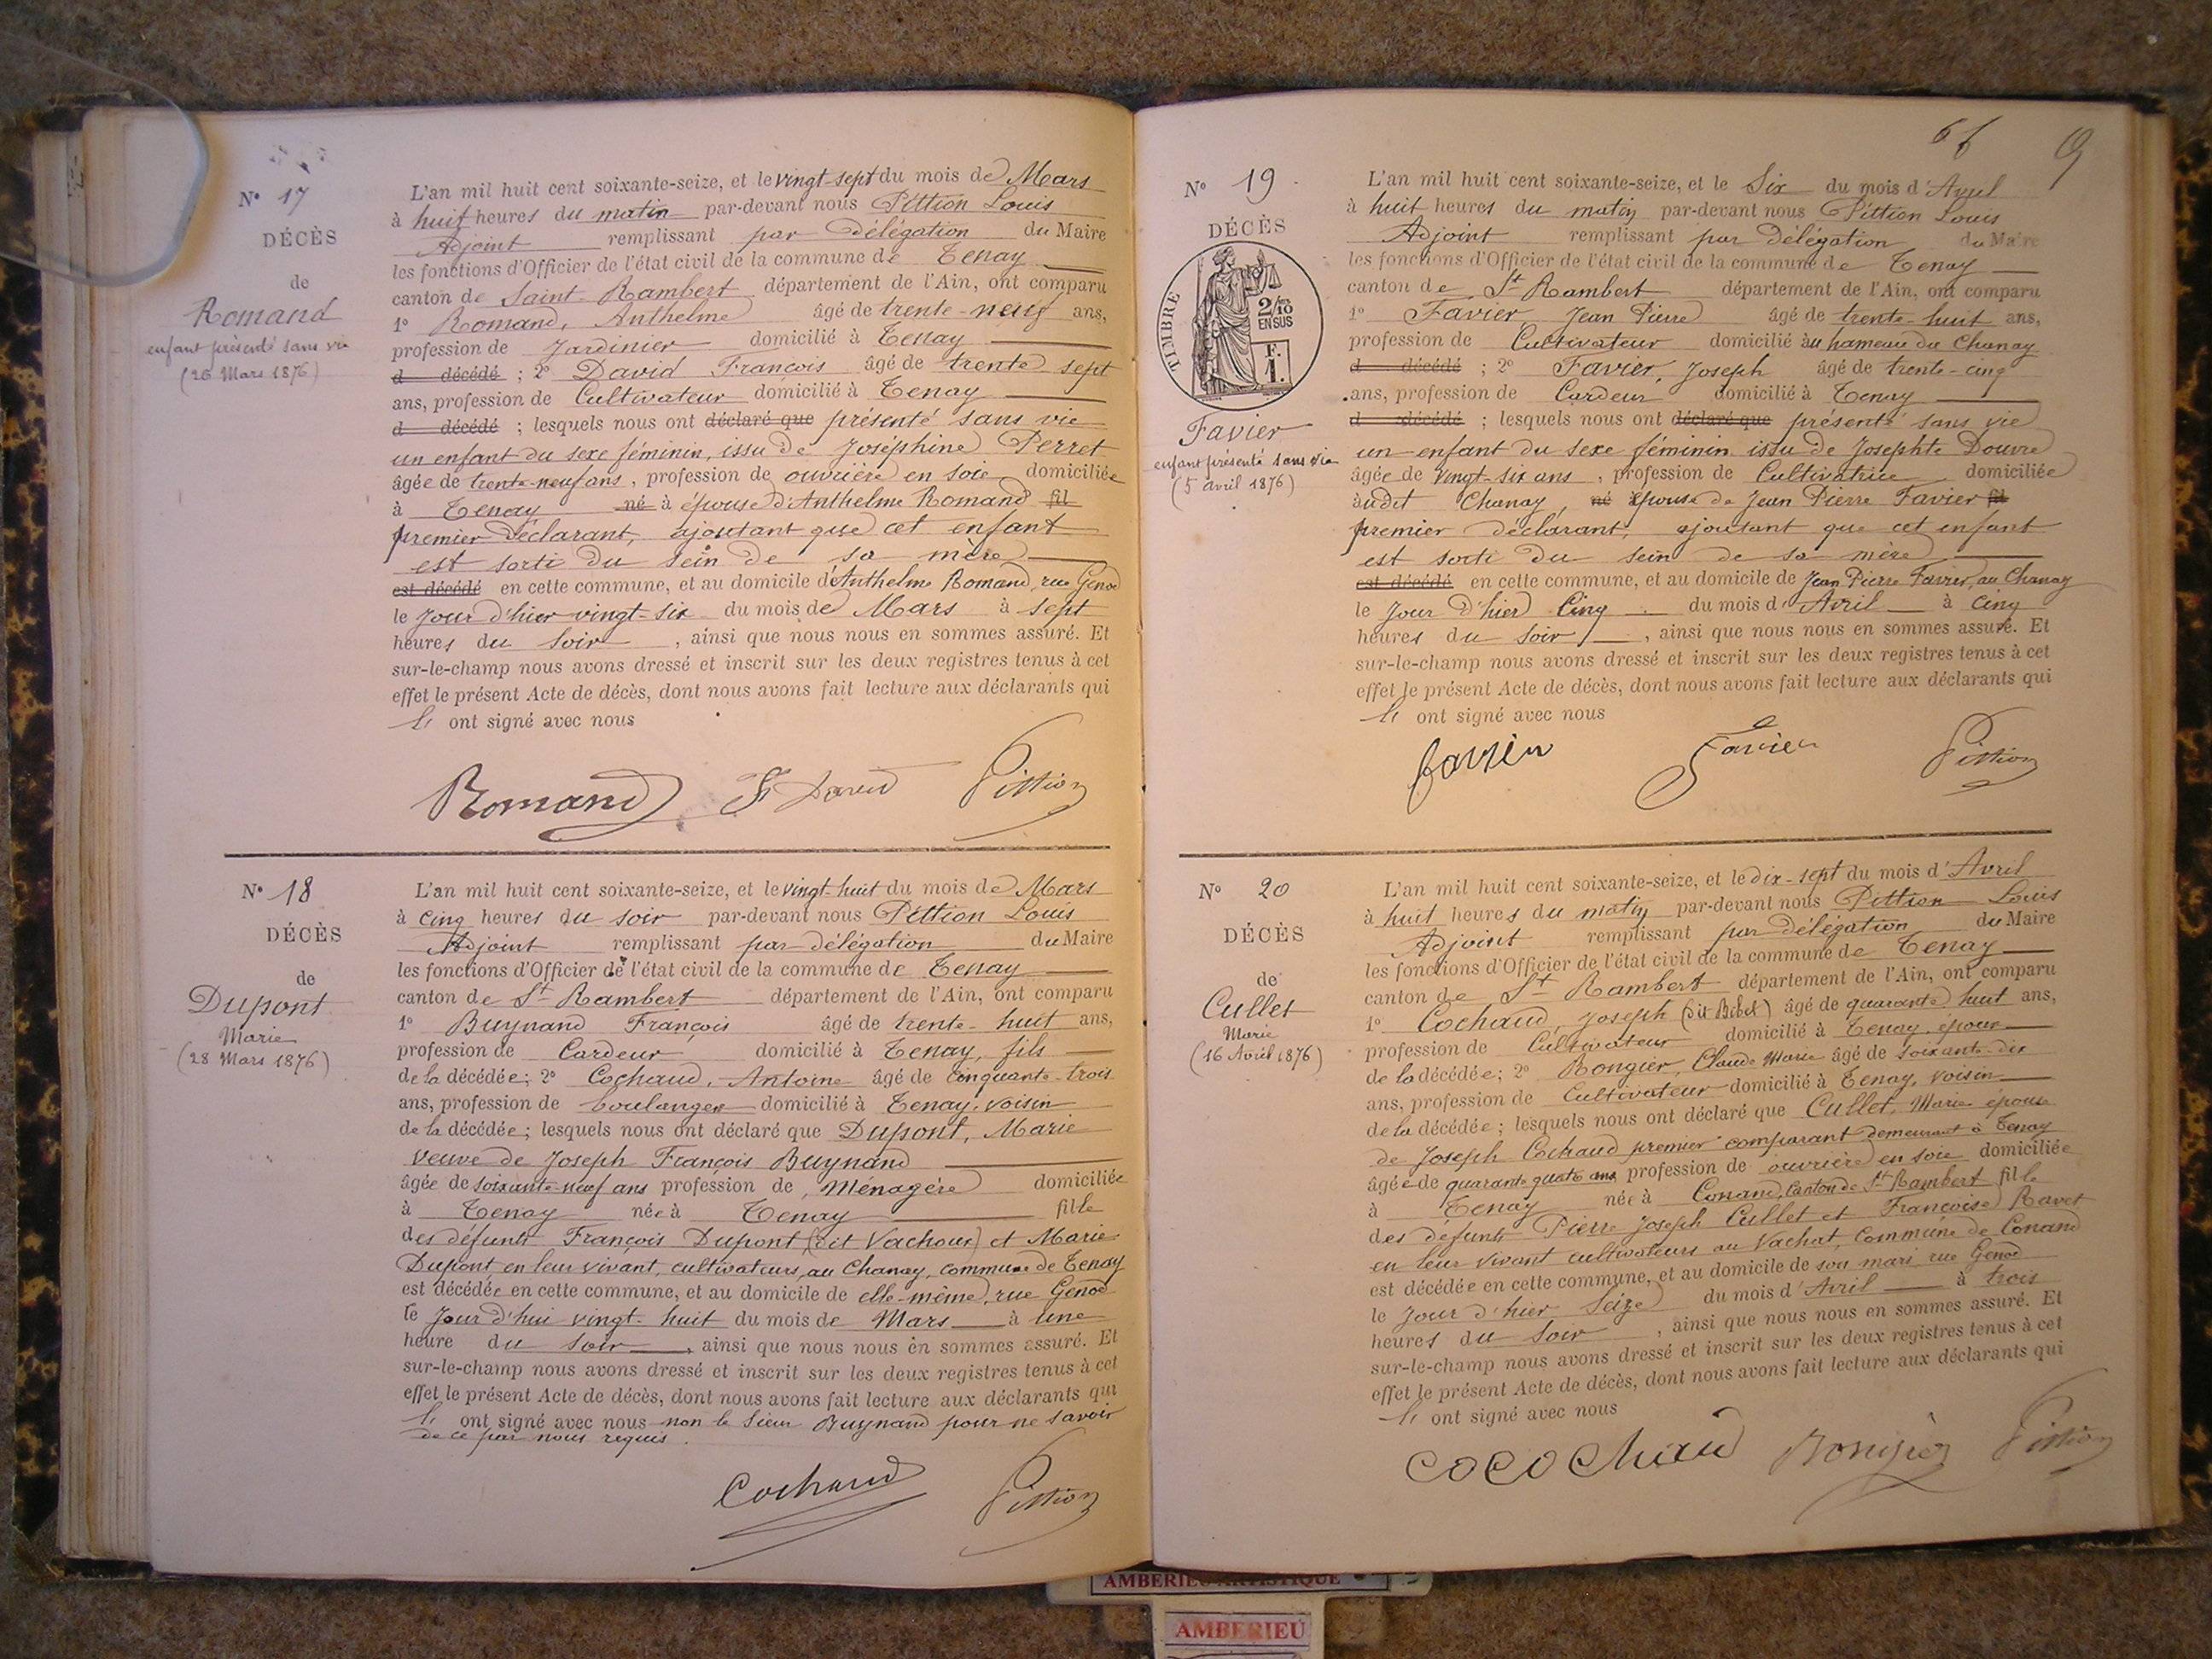 N° 17
DÉCÈS
de
Romand
enfant présenté sans vie
(26 Mars 1876)
L'an mil huit cent soixante-seize, et le vingt-sept du mois de Mars
à huit heures du matin par-devant nous Pittion Louis
Adjoint remplissant par délégation du Maire
les fonctions d'Officier de l'état civil de la commune de Tenay
canton de Saint-Rambert département de l'Ain, ont comparu
1° Romand, Anthelme âgé de trente-neuf ans,
profession de Jardinier domicilié à Tenay
d décédé ; 2° David François âgé de trente sept
ans, profession de Cultivateur domicilié à Tenay
d décédé ; lesquels nous ont déclaré que présenté sans vie
un enfant du sexe féminin, issu de Joséphine Perret
âgée de trente-neuf ans, profession de ouvrière en soie domiciliée
à Tenay né à épouse d'Anthelme Romand fil
premier déclarant, ajoutant que cet enfant
est sorti du sein de sa mère
est décédé en cette commune, et au domicile d'Anthelme Romand, rue Genod
le jour d'hier vingt-six du mois de Mars à sept
heures du soir, ainsi que nous nous en sommes assuré. Et
sur-le-champ nous avons dressé et inscrit sur les deux registres tenus à cet
effet le présent Acte de décès, dont nous avons fait lecture aux déclarants qui
ont signé avec nous
Romand F David Pittion
N° 18
DÉCÈS
de
Dupont
Marie
(28 Mars 1876)
L'an mil huit cent soixante-seize, et le vingt-huit du mois de Mars
à cinq heures du soir par-devant nous Pittion Louis
Adjoint remplissant par délégation du Maire
les fonctions d'Officier de l'état civil de la commune de Tenay
canton de St Rambert département de l'Ain, ont comparu
1° Buynand François âgé de trente-huit ans,
profession de Cardeur domicilié à Tenay, fils
de la décédée; 2° Cochaud, Antoine âgé de cinquante-trois
ans, profession de boulanger domicilié à Tenay, voisin
de la décédée; lesquels nous ont déclaré que Dupont, Marie
veuve de Joseph François Buynand
âgée de soixante-neuf ans profession de Ménagère domiciliée
à Tenay née à Tenay fille
des défunts François Dupont (dit Vachoux) et Marie
Dupont en leur vivant, cultivateurs, au Chanay, commune de Tenay
est décédée en cette commune, et au domicile de elle-même, rue Genod
le jour d'hui vingt-huit du mois de Mars à une
heure du soir, ainsi que nous nous en sommes assuré. Et
sur-le-champ nous avons dressé et inscrit sur les deux registres tenus à cet
effet le présent Acte de décès, dont nous avons fait lecture aux déclarants qui
ont signé avec nous non le sieur Buynand pour ne savoir
de ce par nous requis.
Cochaud Pittion
66 9
N° 19
DÉCÈS
TIMBRE
2/10
EN SUS
F.
1.
Favier
enfant présenté sans vie
(5 avril 1876)
L'an mil huit cent soixante-seize, et le Six du mois d'Avril
à huit heures du matin par-devant nous Pittion Louis
Adjoint remplissant par délégation du Maire
les fonctions d'Officier de l'état civil de la commune de Tenay
canton de St Rambert département de l'Ain, ont comparu
1° Favier Jean Pierre âgé de trente-huit ans,
profession de Cultivateur domicilié au hameau du Chanay
d décédé ; 2° Favier, Joseph âgé de trente-cinq
ans, profession de Cardeur domicilié à Tenay
d décédé ; lesquels nous ont déclaré que présenté sans vie
un enfant du sexe féminin issu de Josephte Douvre
âgée de vingt-six ans, profession de Cultivatrice domiciliée
audit Chanay, né épouse de Jean Pierre Favier fil
premier déclarant, ajoutant que cet enfant
est sorti du sein de sa mère
est décédé en cette commune, et au domicile de Jean Pierre Favier, au Chanay
le jour d'hier Cinq du mois d'Avril à cinq
heures du soir, ainsi que nous nous en sommes assuré. Et
sur-le-champ nous avons dressé et inscrit sur les deux registres tenus à cet
effet le présent Acte de décès, dont nous avons fait lecture aux déclarants qui
ont signé avec nous
favier Favier Pittion
N° 20
DÉCÈS
de
Cullet
Marie
(16 Avril 1876)
L'an mil huit cent soixante-seize, et le dix-sept du mois d'Avril
à huit heures du matin par-devant nous Pittion Louis
Adjoint remplissant par délégation du Maire
les fonctions d'Officier de l'état civil de la commune de Tenay
canton de St Rambert département de l'Ain, ont comparu
1° Cochaud, Joseph (dit Bibet) âgé de quarante huit ans,
profession de Cultivateur domicilié à Tenay, époux
de la décédée; 2° Rongier, Claude Marie âgé de soixante-dix
ans, profession de Cultivateur domicilié à Tenay, voisin
de la décédée; lesquels nous ont déclaré que Cullet, Marie épouse
de Joseph Cochaud premier comparant demeurant à Tenay
âgée de quarante quatre ans profession de ouvrière en soie domiciliée
à Tenay née à Conand, Canton de St Rambert fille
des défunts Pierre Joseph Cullet et Françoise Ravet
en leur vivant cultivateurs au Vachat, commune de Conand
est décédée en cette commune, et au domicile de son mari rue Genod
le jour d'hier Seize du mois d'Avril à trois
heures du soir, ainsi que nous nous en sommes assuré. Et
sur-le-champ nous avons dressé et inscrit sur les deux registres tenus à cet
effet le présent Acte de décès, dont nous avons fait lecture aux déclarants qui
ont signé avec nous
cocochaud Rongier Pittion
AMBERIEU ARTISTIQUE
AMBERIEU